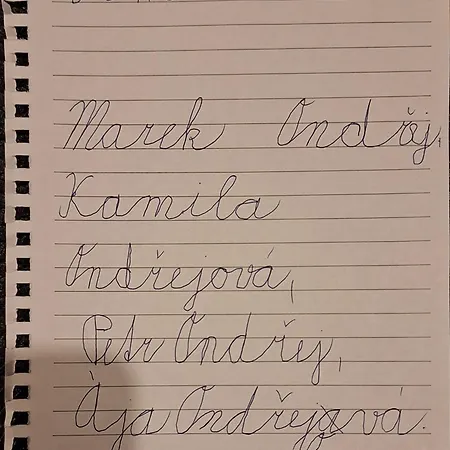 Marek Ondřej,
Kamila
Ondřejová,
Petr Ondřej,
Ája Ondřejová.